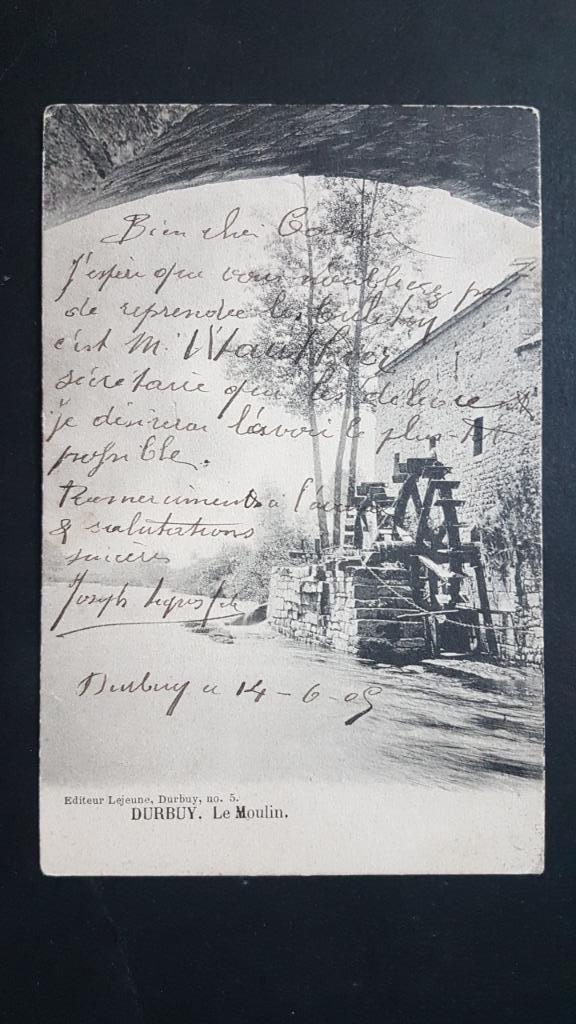 Bien cher Cousin
J'espère que vous n'oublierez pas
de reprendre les
c'est M. Wauthier
secrétaire qui les délivre et
je désirerai l'avoir le plus tôt
possible.
Remerciments à l'avance
& salutations
sincères
Joseph Legros
Durbuy le 14-6-05
Editeur Lejeune, Durbuy, no. 5.
DURBUY. Le Moulin.